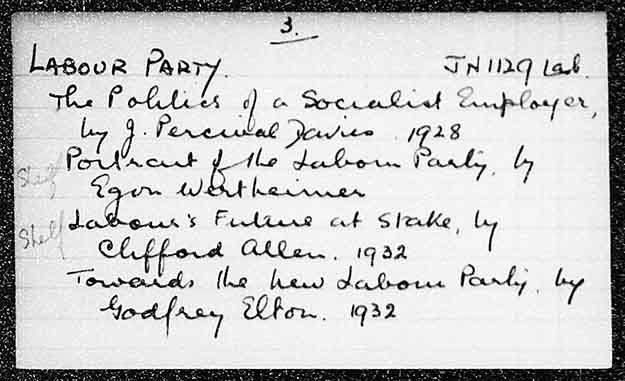 3.
LABOUR PARTY. JN1129 Lab.
The Politics of a Socialist Employer,
by J. Percival Davies 1928
Shelf Portrait of the Labour Party, by
Egon Wertheimer
Shelf Labour's Future at Stake, by
Clifford Allen. 1932
Towards the new Labour Party, by
Godfrey Elton. 1932